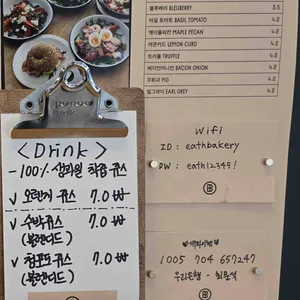 블루베리 BLEUBERRY 3.5
바질 토마토 BASIL TOMATO 4.2
메이플피칸 MAPLE PECAN 4.2
레몬커드 LEMON CURD 4.2
트러플 TRUFFLE 4.2
베이컨어니언 BACON ONION 4.2
무화과 FIG 4.2
얼그레이 EARL GREY 4.2
<Drink>
-100% 생과일 착즙쥬스
V 오렌지 쥬스 7.0
V 수박쥬스 7.0
(블렌디드)
V 청포도 쥬스 7.0
(블렌디드)
Wifi
ID : eathbakery
PW : eath12345!
1005 704 657247
우리은행 -
B